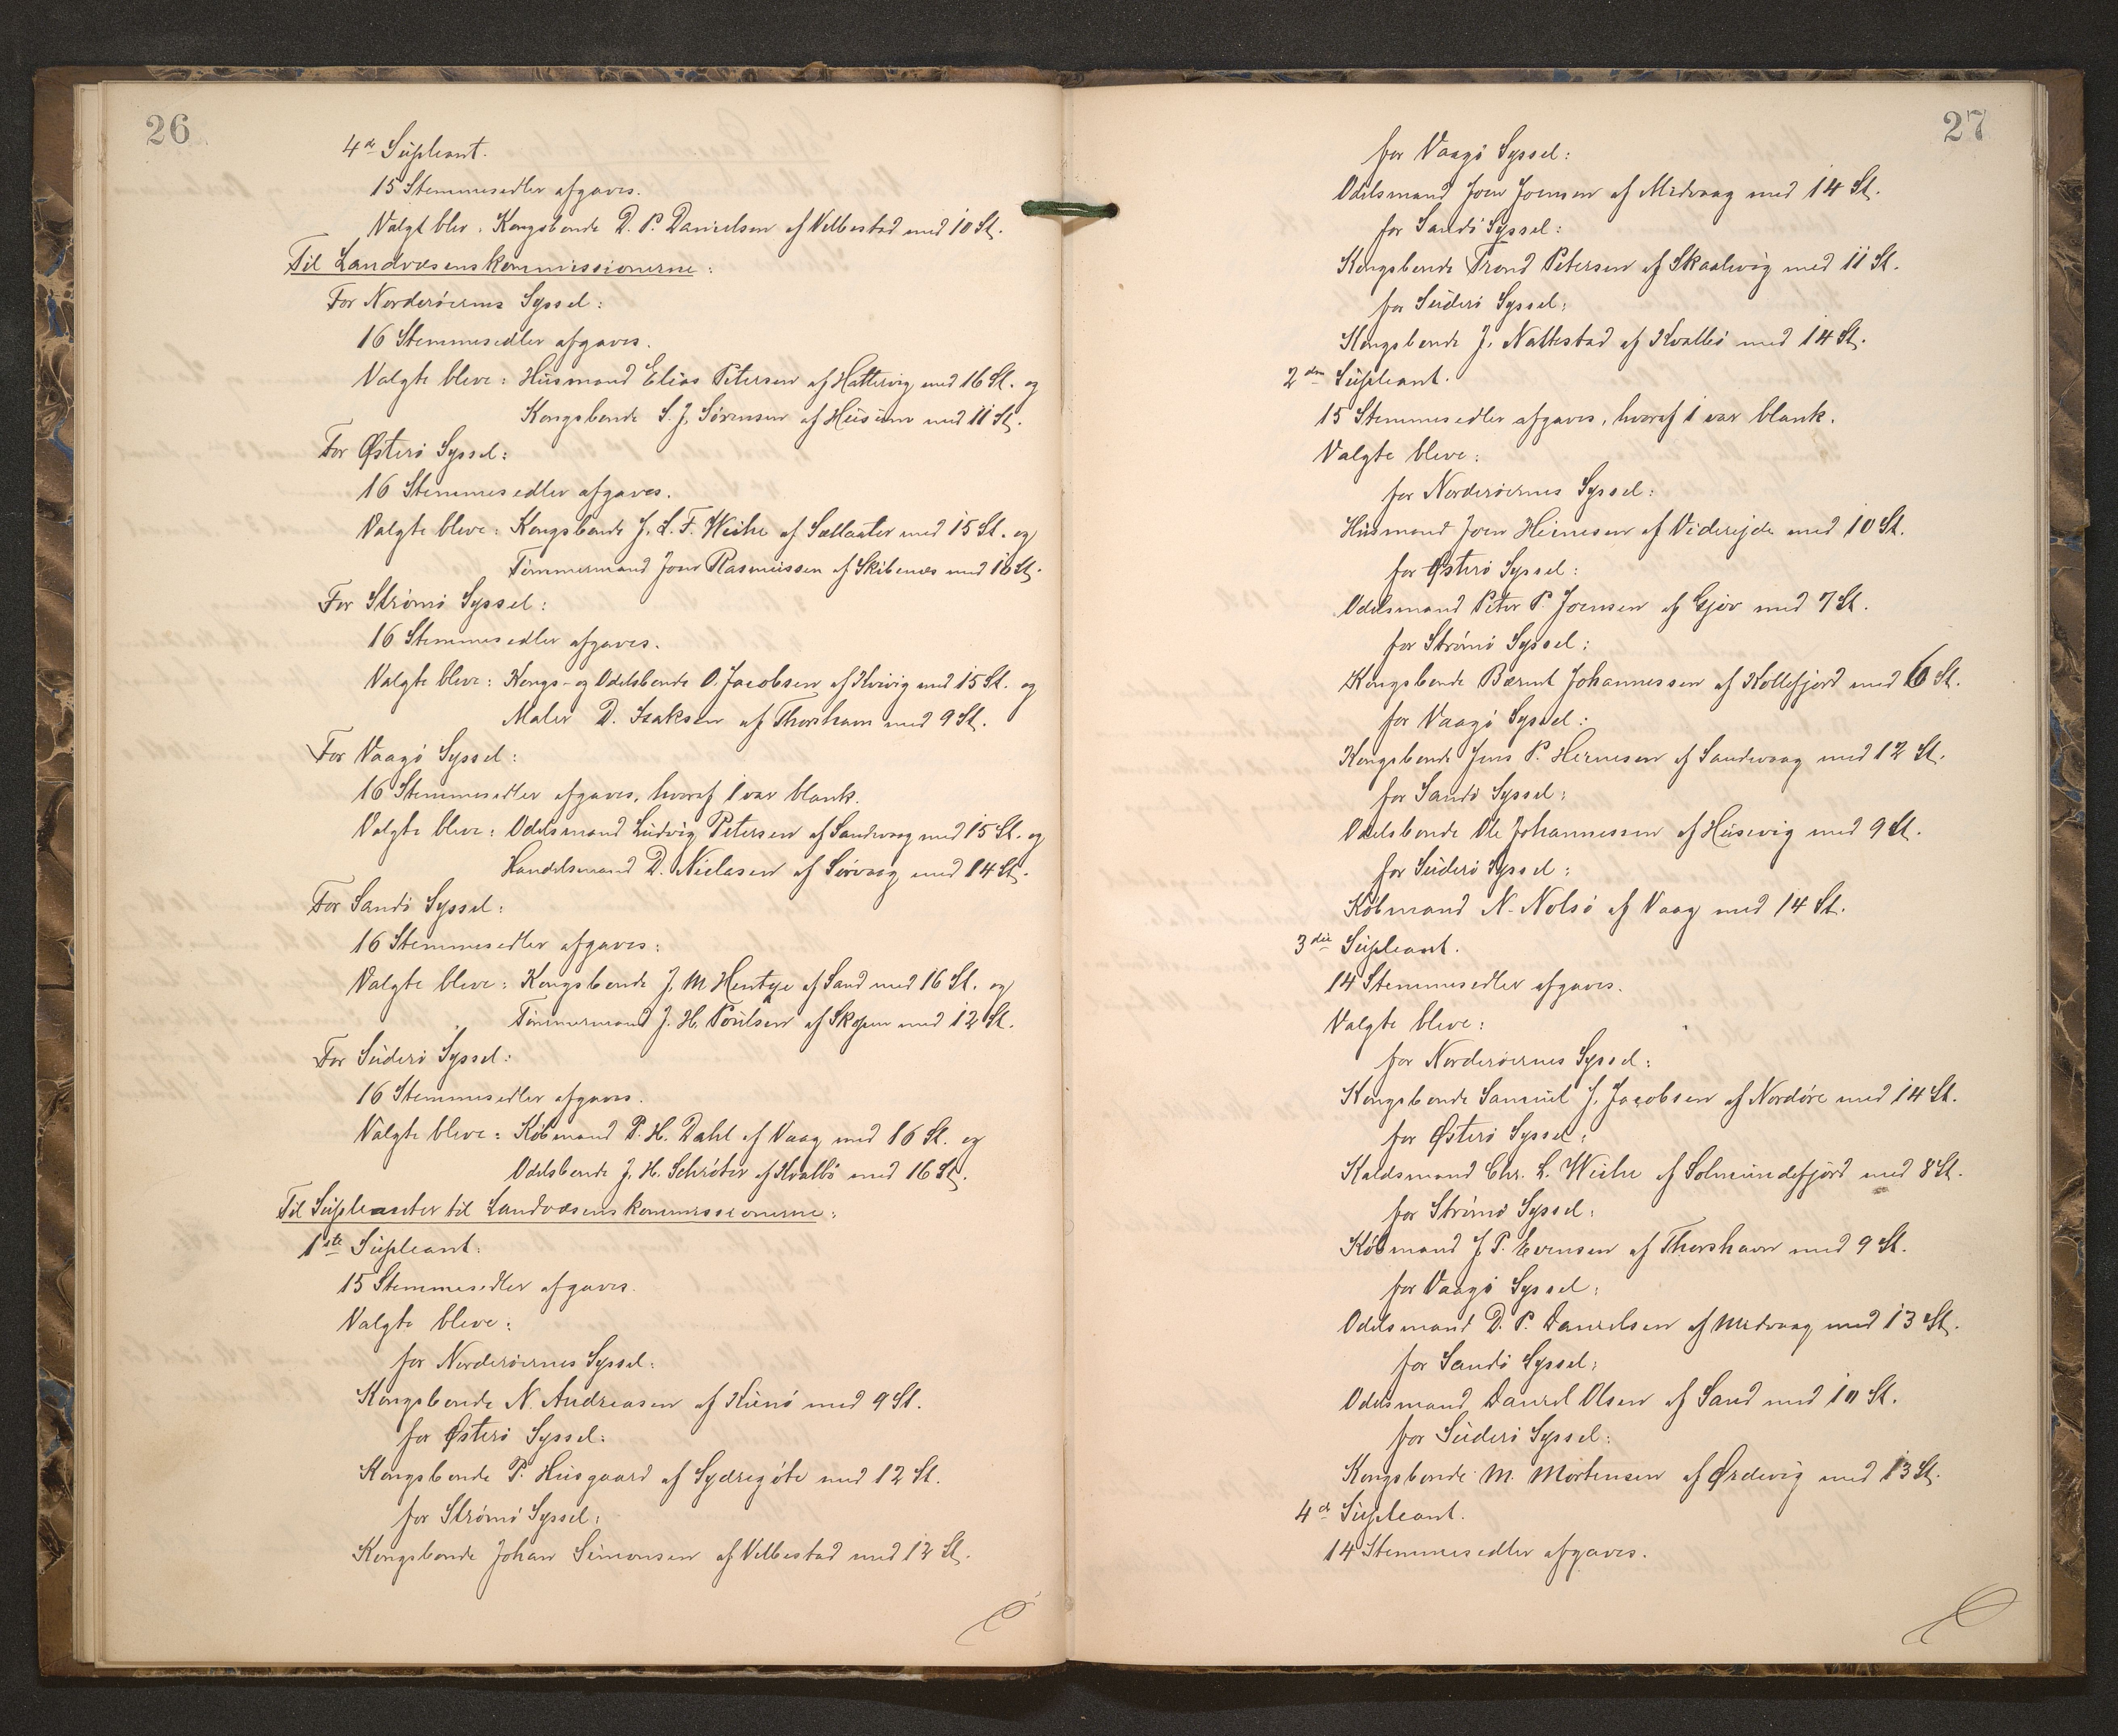 26
4de Supleant.
15 Stemmesedler afgaves.
Valgt blev: Kongsbonde D. P. Danielsen af Velbestad med 10 St.
Til Landvæsenskommissionerne:
For Norderøernes Syssel:
16 Stemmesedler afgaves.
Valgte bleve: Husmand Elias Petersen af Hattervig med 16 St. og
Kongsbonde S. J. Sørensen af Husum med 11 St.
For Østerø Syssel:
16 Stemmesedler afgaves.
Valgte bleve: Kongsbonde J. L. F. Weihe af Sællæter med 15 St. og
Tømmermand Joen Rasmussen af Skibenæs med 10 St.
For Strømø Syssel:
16 Stemmesedler afgaves.
Valgte bleve: Kongs- og Odelsbonde O. Jacobsen af Kvivig med 15 St. og
Maler D. Isaksen af Thorshavn med 9 St.
For Vaagø Syssel:
16 Stemmesedler afgaves, hvoraf 1 var blank.
Valgte bleve: Odelsmand Ludvig Petersen af Sandevaag med 15 St. og
Handelsmand D. Niclasen af Sørvaag med 14 St.
For Sandø Syssel:
16 Stemmesedler afgaves:
Valgte bleve: Kongsbonde J. M. Hentze af Sand med 16 St. og
Tømmermand J. H. Poulsen af Skopen med 12 St.
For Suderø Syssel:
16 Stemmesedler afgaves.
Valgte bleve: Købmand P. H. Dahl af Vaag med 16 St. og
Odelsbonde J. H. Schrøter af Kvalbø med 16 St.
Til Supleanter til Landvæsenskommissionerne:
1ste Supleant:
15 Stemmesedler afgaves.
Valgte bleve:
for Norderøernes Syssel:
Kongsbonde N. Andreasen af Kunø med 9 St.
for Østerø Syssel:
Kongsbonde P. Husgaard af Sydregøte med 12 St.
for Strømø Syssel:
Kongsbonde Johan Simonsen af Velbestad med 12 St.
27
for Vaagø Syssel:
Odelsmand Joen Joensen af Midvaag med 14 St.
for Sandø Syssel:
Kongsbonde Trond Petersen af Skaalevig med 11 St.
for Suderø Syssel:
Kongsbonde J. Nattestad af Kvalbø med 14 St.
2den Supleant.
15 Stemmesedler afgaves, hvoraf 1 var blank.
Valgte bleve:
for Norderøernes Syssel:
Husmand Joen Heinesen af Viderejde med 10 St.
for Østerø Syssel:
Odelsmand Peter P. Joensen af Gjov med 7 St.
for Strømø Syssel:
Kongsbonde Bærent Johannessen af Kollefjord med 6 St.
for Vaagø Syssel:
Kongsbonde Jens P. Heinesen af Sandevaag med 12 St.
for Sandø Syssel:
Odelsbonde Ole Johannessen af Husevig med 9 St.
for Suderø Syssel:
Købmand N. Nolsø af Vaag med 14 St.
3die Supleant.
14 Stemmesedler afgaves.
Valgte bleve:
for Norderøernes Syssel:
Kongsbonde Samuel J. Jacobsen af Nordøre med 14 St.
for Østerø Syssel:
Kaldsmand Chr. L. Weihe af Solmundefjord med 8 St.
for Strømø Syssel:
Købmand J. P. Evensen af Thorshavn med 9 St.
for Vaagø Syssel:
Odelsmand D. P. Danielsen af Midvaag med 13 St.
for Sandø Syssel:
Odelsmand Daniel Olsen af Sand med 10 St.
for Suderø Syssel:
Kongsbonde M. Mortensen af Ørdevig med 13 St.
4de Supleant.
14 Stemmesedler afgaves.